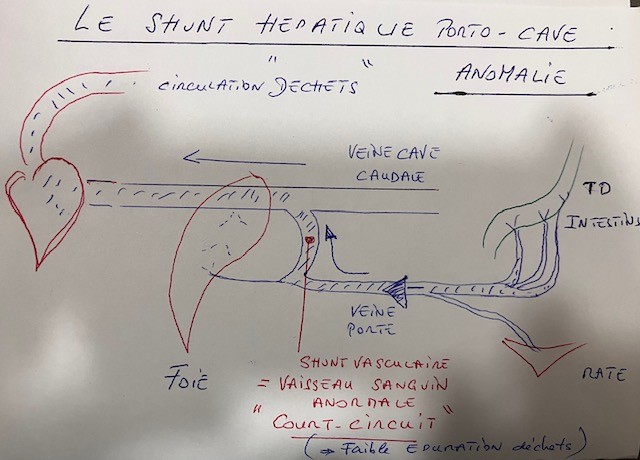 LE SHUNT HEPATIQUE PORTO-CAVE
ANOMALIE
CIRCULATION "DECHETS"
VEINE CAVE
CAUDALE
TD
INTESTINS
VEINE
PORTE
FOIE
RATE
SHUNT VASCULAIRE
= VAISSEAU SANGUIN
ANORMALE
" COURT-CIRCUIT "
(⇒ Faible EPURATION déchets)